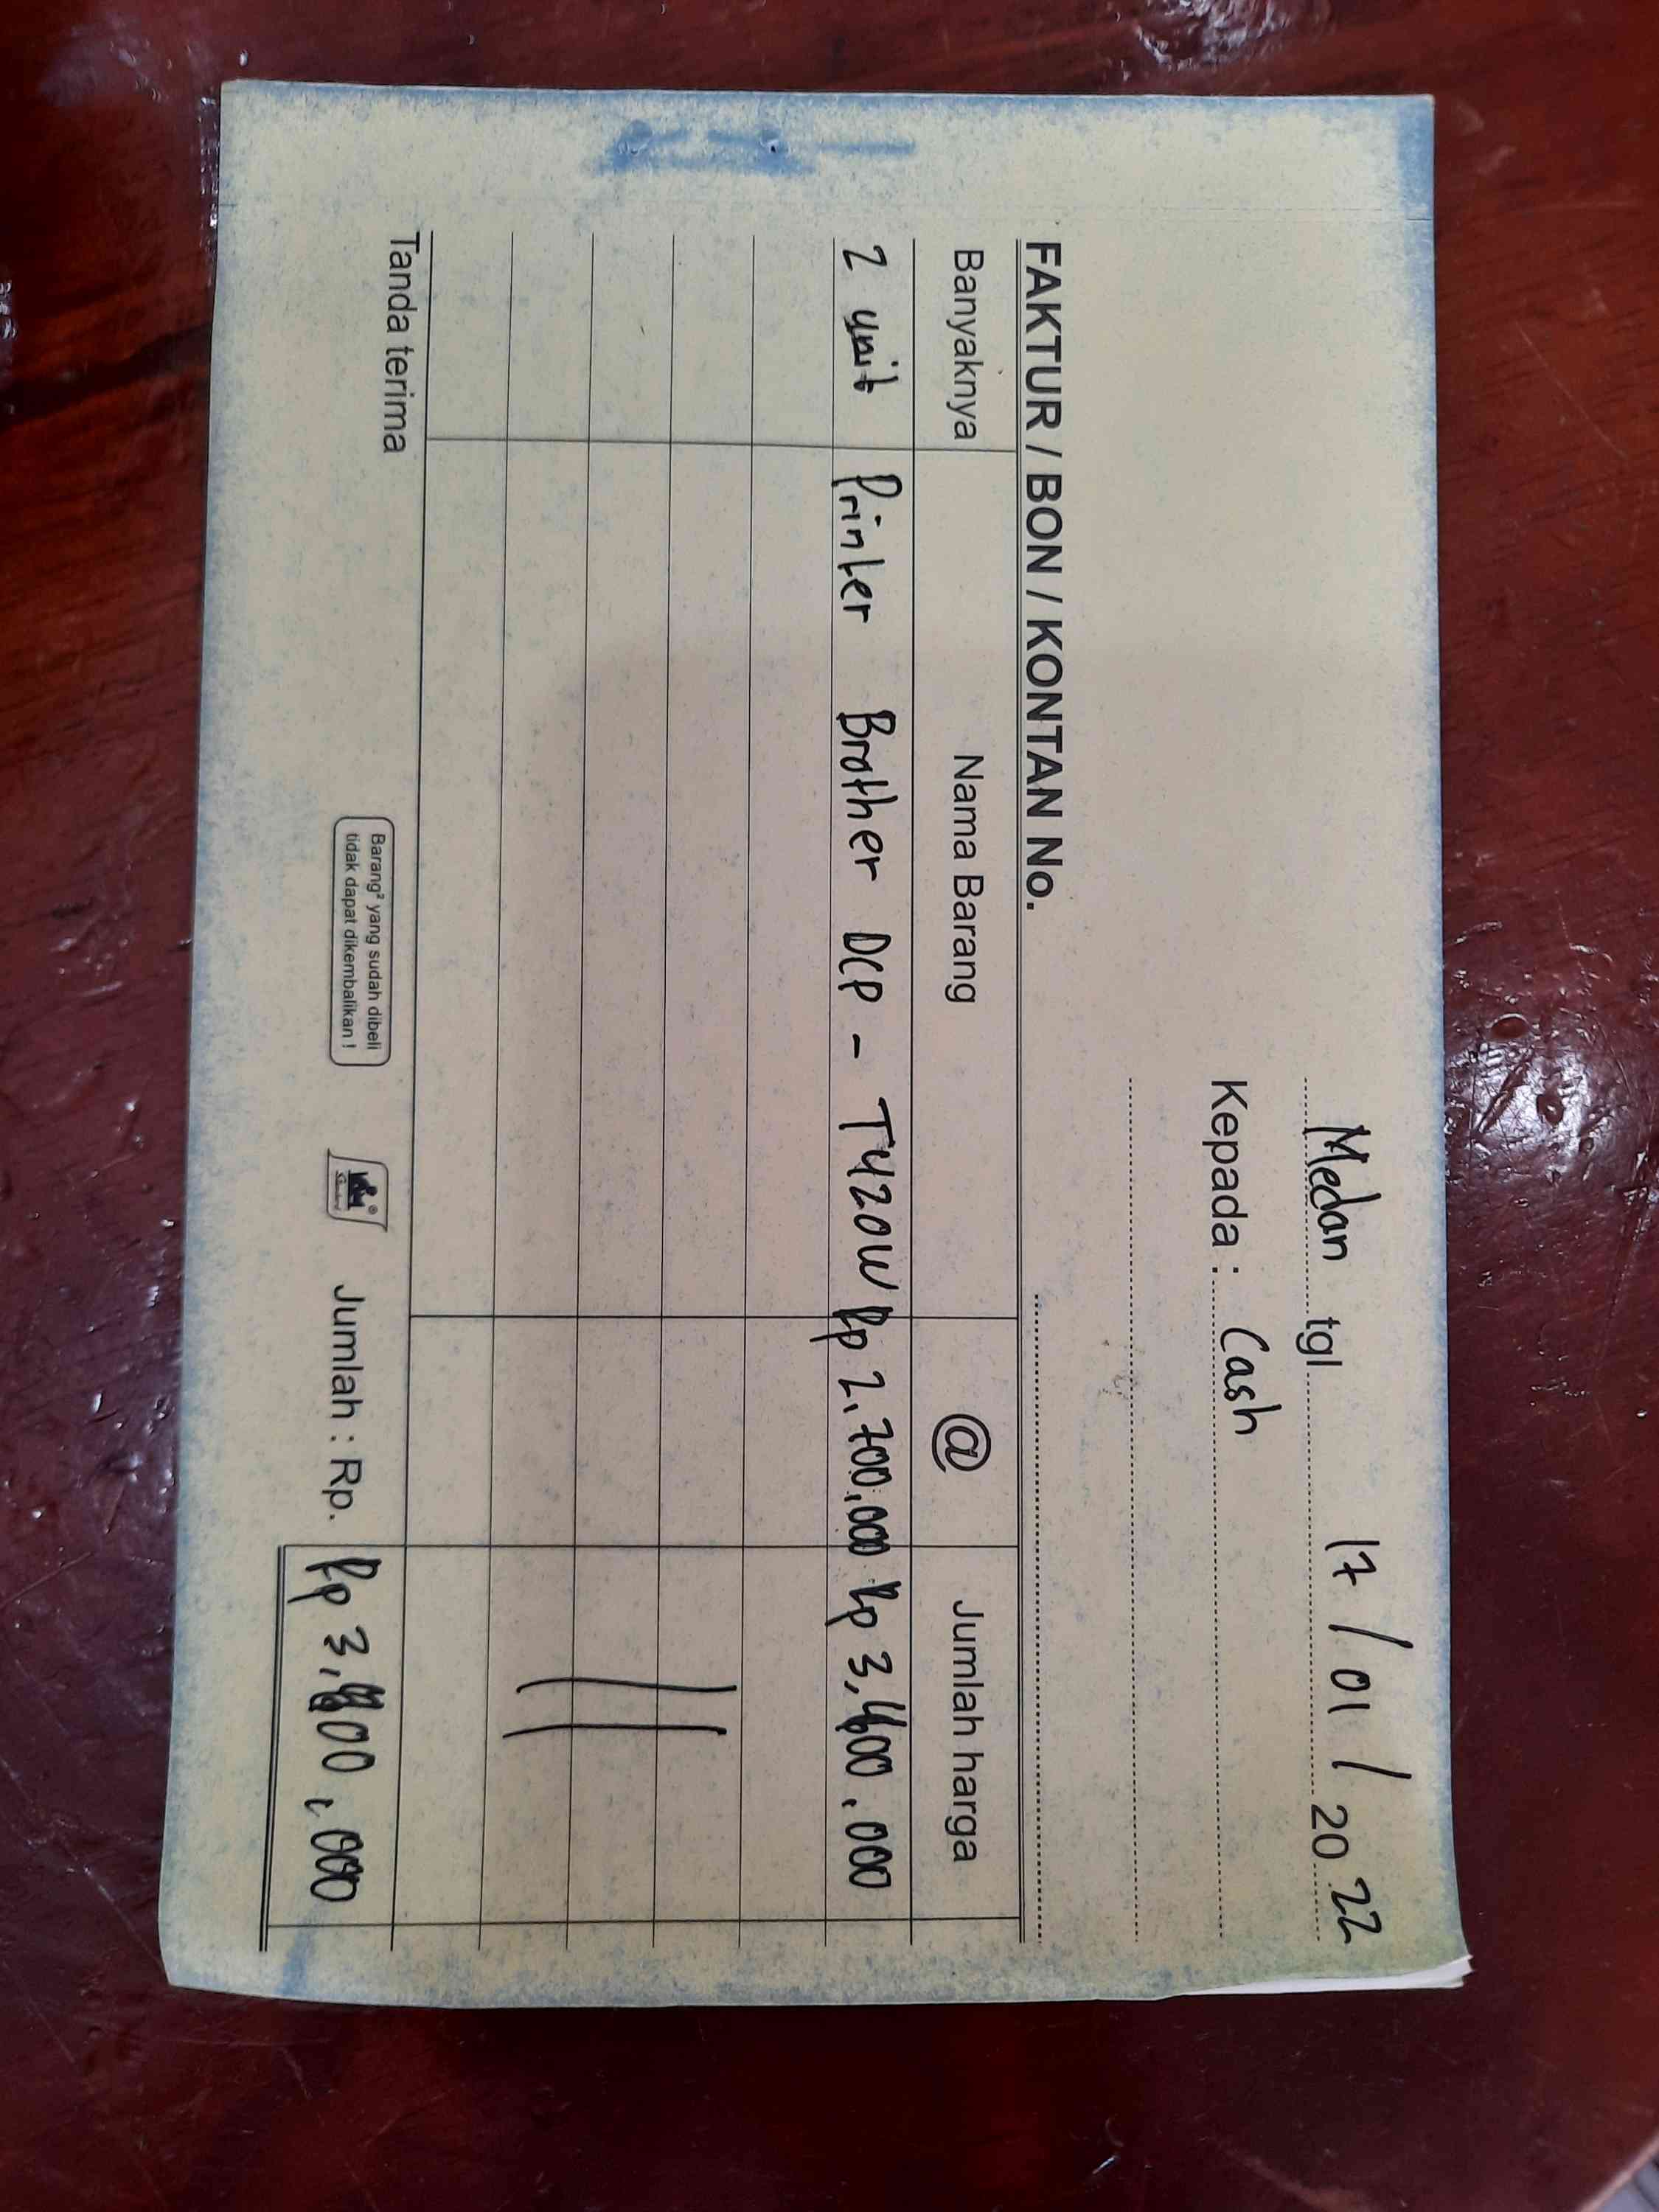 Medan tgl 17 / 01 / 20 22
Kepada : Cash
FAKTUR / BON / KONTAN No.
Banyaknya Nama Barang @ Jumlah harga
2 unit Printer Brother DCP - T420W Rp 2.700.000 Rp
Tanda terima
Barang² yang sudah dibeli
tidak dapat dikembalikan !
Jumlah : Rp. Rp